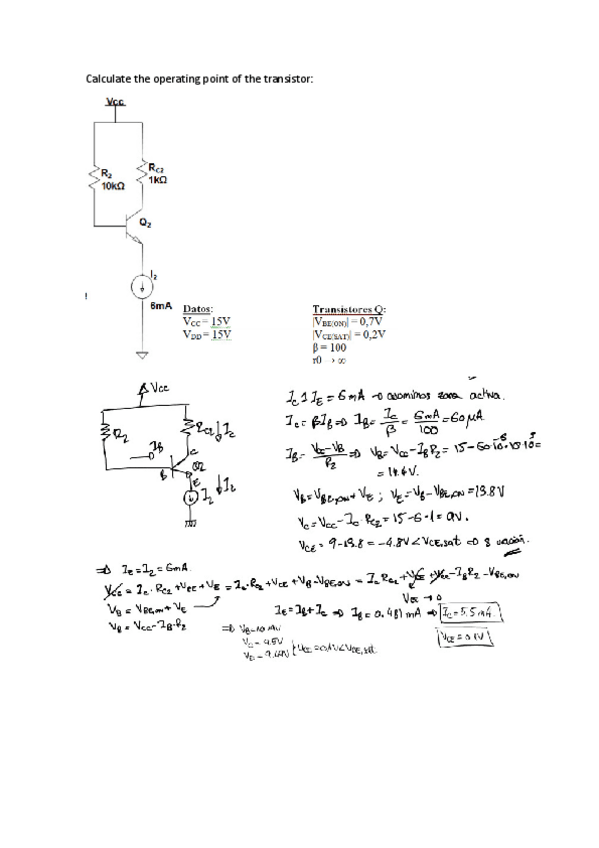 Calculate the operating point of the transistor:
Vcc
R2
10kΩ
RC2
1kΩ
Q2
I2
6mA
Datos:
VCC = 15V
VDD = 15V
Transistores Q:
|VBE(ON)| = 0,7V
|VCE(SAT)| = 0,2V
β = 100
r0 → ∞
Vcc
R2
RC2 ↓I2
IB
C
B
Q2
E
I2 ↓I2
IC ≃ IE = 6mA → asumimos zona activa.
IC = βIB ⇒ IB = IC/β = 6mA/100 = 60μA
IB = (VCC-VB)/R2 ⇒ VB = VCC - IBR2 = 15 - 60·10⁻⁶·10·10³ =
= 14.4V.
VB = VBE,ON + VE ; VE = VB - VBE,ON = 13.8V
VC = VCC - IC·RC2 = 15 - 6·1 = 9V.
VCE = 9 - 13.8 = -4.8V < VCE,sat ⇒
⇒ IE = I2 = 6mA.
VCC = IC·RC2 + VCE + VE = IC·RC2 + VCE + VB - VBE,ON = IC RC2 + VCE + VCC - IBR2 - VBE,ON
VB = VBE,ON + VE
VCE → 0
VB = VCC - IB·R2
IE = IB + IC ⇒ IB = 0.481 mA ⇒ IC = 5.5 mA
VCE = 0.1V
VC = 9.5V
VCE = 0.1V < VCE,sat